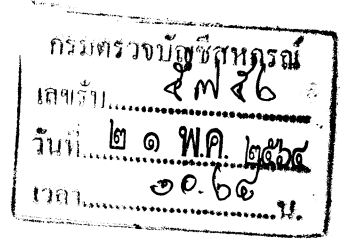 กรมตรวจบัญชีสหกรณ์
เลขรับ
วันที่ ๒ ๑ พ.ค. ๒๕๖๔
เวลา น.